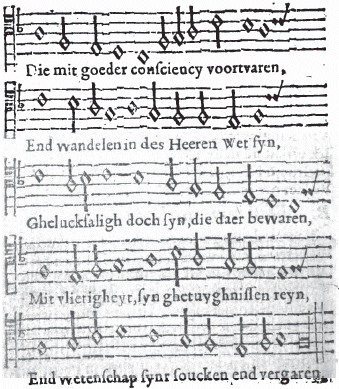 Die mit goeder consciency voortvaren,
End wandelen in des Heeren Wet syn,
Ghelucksaligh doch syn, die daer bewaren,
Mit vlietigheyt, syn ghetuyghnissen reyn,
End wetenschap synr soucken end vergaren,